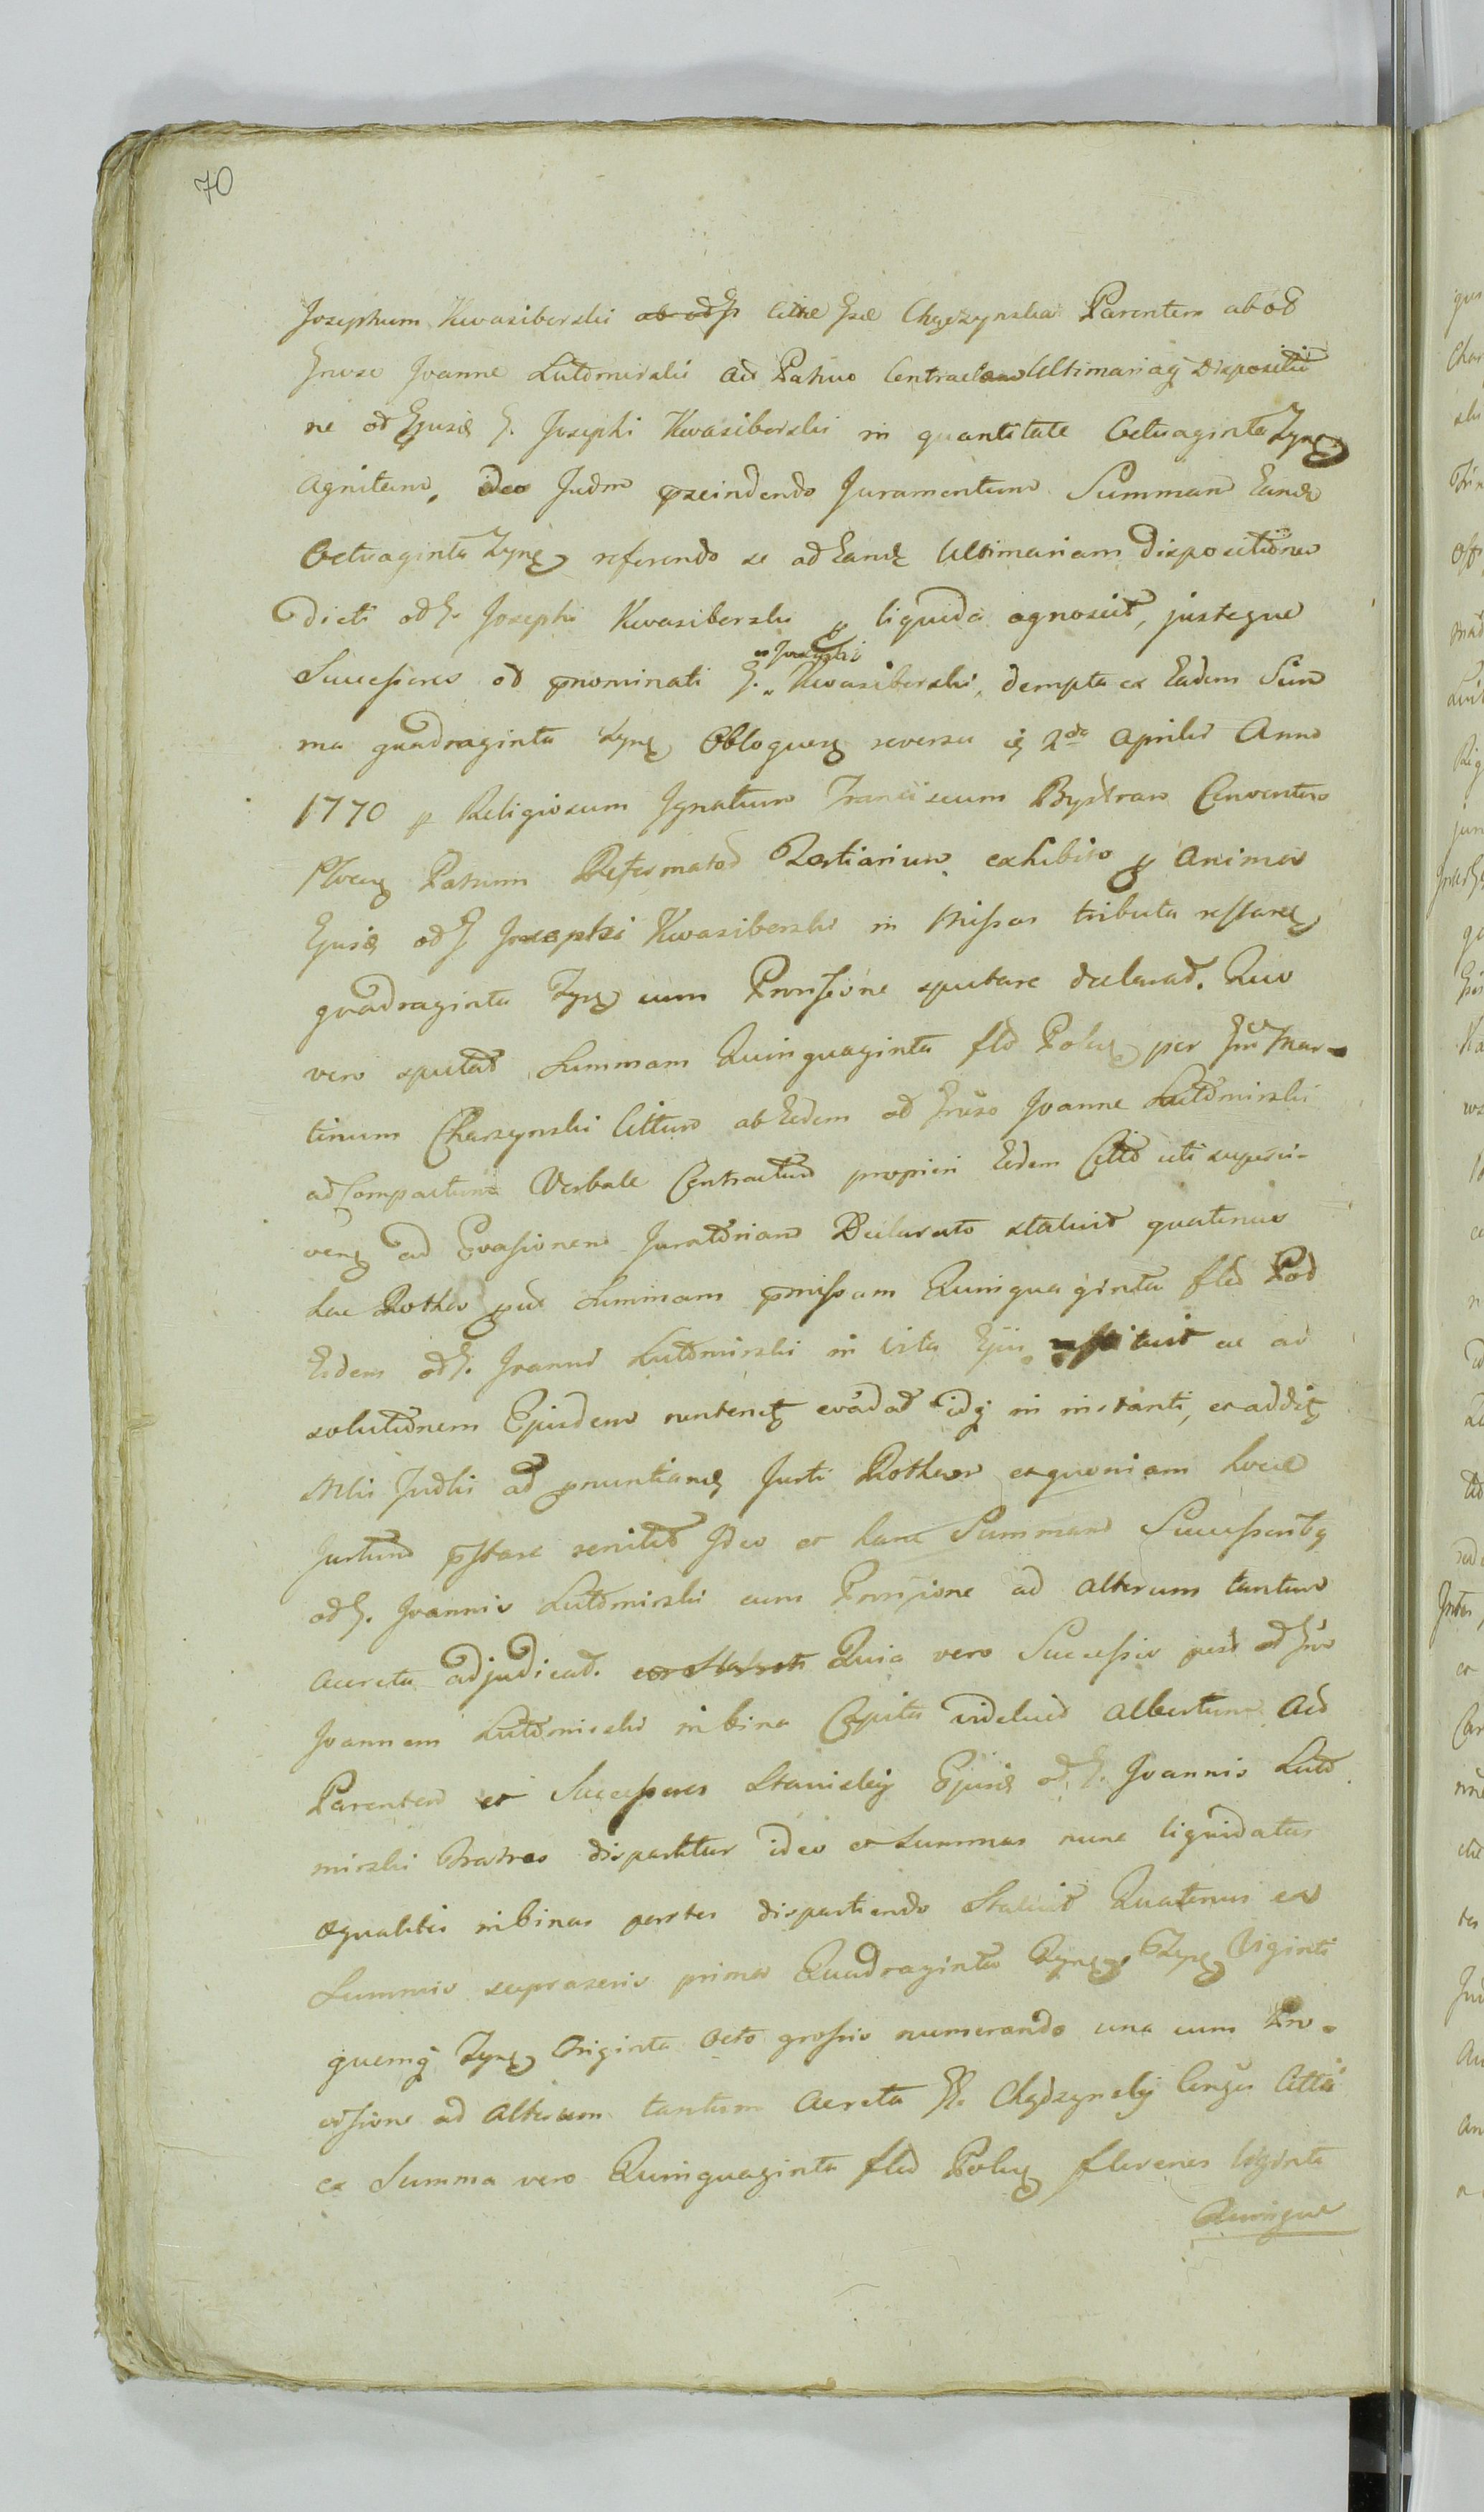 70
Josephum Kwasiborski ab od G. Citae Gsae Chądzynska Parentem ab od
Gnroso Joanne Lutomirski Act Patruo Contractam Ultimariaq Dispositio
ne od Ejusd G. Josephi Kwasiborski in quantitate Octuaginta Tynf
agnitam, ideo Judm pscindendo Juramentum Summam Eand
Octuaginta Tynf referendo se ad Eand Ultimariam dispositionem
dicti od G. Josephi Kwasiborski p liquida agnoscit, justeque
Successores od pnominati G. Josephi Kwasiborski, dempta ex Eadem Sum
ma quadraginta Tynf Obloquen reversu de 2da Aprilis Anno
1770 p Religiosum Ignatium Franciscum Bystram Conventus
Plocen Patrum Reformator Tertiarium exhibito p Anima
Ejusd od G Josephi Kwasiborski in Missas tributa restan
quadraginta Tynf cum Provisione sputare declarat. Quo
vero sputat Summam Quinquaginta flor Polon per Gm Mar-
tinum Charzynski Cittum ab Eodem od Gnroso Joanne Lutomirski
ad Compactum Verbale Contractum proprieri Eidem Citto uti superi-
ven ad Evasionem Juratoriam Declarato statuit quatenus
hac Rotha quod Summam pmissam Quinquaginta flor Pol
Eidem od G. Joanni Lutomirski in Vita Ejus restituit ac ad
solutionem Ejusdem non tenet evadat idq in instanti, ex addit
Mli Judli ad pnuntiand Jurti Rotham exquoniam hocce
Jurtum pstare renitet Ideo et hanc Summam Successoribq
od G. Joannis Lutomirski cum Provisione ad alterum tantum
accreta adjudicat. Quia vero Successio post od Gm
Joannem Lutomirski in bina Capita videlicet Albertum Act
Parentem et Successores Stanislai Ejusd od G. Joannis Luto
mirski Fratres dispartitur ideo et Summas nunc liquidatas
aequaliter in binas partes dispartiendo Statuit Quatenus ex
Summis suprascris prima Quadraginta Tynf Tynf Viginti
quemq Tynf Triginta octo grossis numerando una cum Pro-
visione ad alterum tantum accreta G. Chądzynskij Conges Citta
ex Summa vero Quinquaginta flor Polon florenos Viginti
Quinque